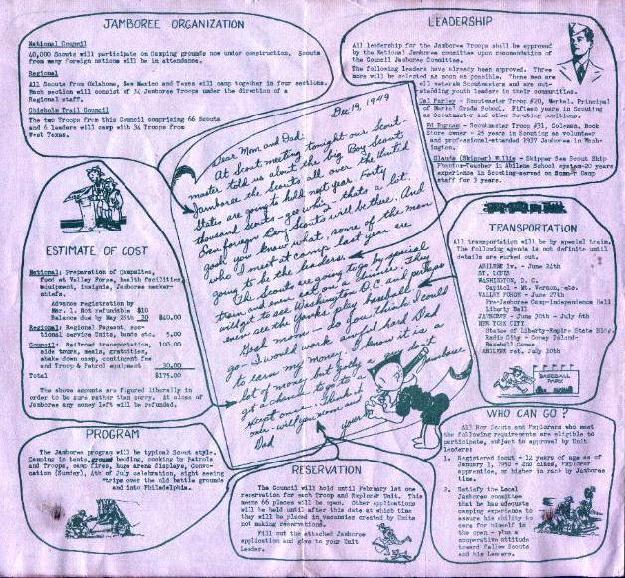 JAMBOREE ORGANIZATION
National Council
40,000 Scouts will participate on Camping grounds now under construction. Scouts
from many foreign nations will be in attendance.
Regional
All Scouts from Oklahoma, New Mexico and Texas will camp together in four sections.
Each section will consist of 34 Jamboree Troops under the direction of a
Regional staff.
Chisholm Trail Council
The two Troops from this Council comprising 66 Scouts
and 6 leaders will camp with 34 Troops from
West Texas.
LEADERSHIP
All leadership for the Jamboree Troops shall be approved
by the National Jamboree Committee upon recommendation of
the Council Jamboree Committee.
The following leaders have already been approved. Three
more will be selected as soon as possible. These men are
all veteran Scoutmasters and are out-
standing youth leaders in their communities.
Cal Farley - Scoutmaster Troop #20, Merkel. Principal
of Merkel Grade School. Fifteen years in Scouting
as Scoutmaster and other Scouting positions.
Ed - Scoutmaster Troop #31, Coleman. Book
Store owner - 25 years in Scouting as volunteer
and professional-attended 1937 Jamboree in Wash-
ington.
(Skipper) Willis - Skipper Sea Scout Ship
-Teacher in Abilene School system-20 years
experience in Scouting-served on Summer Camp
staff for 3 years.
Dec 19, 1949
Dear Mom and Dad:
At Scout meeting tonight our Scout-
master told us about the big Boy Scout
Jamboree the Scouts all over the United
States are going to hold next year. Forty
thousand Scouts - gee whiz - thats a lot.
Even foreign Boy Scouts will be there. And
gosh you know what, some of the men
like I met at camp last year are
going to be the leaders.
The Scouts are going by special
train and eat on a dinner. They
will get to see Washington D C and perhaps
even see the Yankees play baseball
Gosh mom, do you think I could
go. I would work awful hard Dad
to earn my money. I know it is a
lot of money but golly we don't
get a chance to go to a Jamboree
except once. Think it
over will you mom and
Dad
your
ESTIMATE OF COST
National: Preparation of Campsites,
food at Valley Forge, health facilities,
equipment, insignia, Jamboree necker-
chiefs.
Advance registration by
Mar. 1. Not refundable $10
Balance due by May 25th 30 $40.00
Regional: Regional Pageant, sec-
tional Service Units, bands etc. 5.00
Council: Railroad transportation, 100.00
side tours, meals, gratuities,
shake down camp, contingent fee
and Troop & Patrol equipment 30.00
Total $175.00
The above accounts are figured liberally in
order to be sure rather than sorry. At close of
Jamboree any money left will be refunded.
TRANSPORTATION
All transportation will be by special train.
The following agenda is not definite until
details are worked out.
ABILENE lv. - June 24th
ST. LOUIS
WASHINGTON, D. C.
Capitol - Mt. Vernon, etc.
VALLEY FORGE - June 27th
Pre-Jamboree Camp-Independence Hall
Liberty Bell
JAMBOREE - June 30th - July 6th
NEW YORK CITY
Statue of Liberty-Empire State Bldg.
Radio City - Coney Island-
Baseball Games
ABILENE ret. July 10th
BASEBALL
PARK
PROGRAM
The Jamboree program will be typical Scout style.
Camping in tents, ground bedding, cooking by Patrols
and Troops, camp fires, huge arena displays, Convo-
cation (Sunday), 4th of July celebration, sight seeing
trips over the old battle grounds
and into Philadelphia.
RESERVATION
The Council will hold until February 1st one
reservation for each Troop and Explorer Unit. This
means 66 places will be open. Other applications
will be held until after this date at which time
they will be placed in vacancies created by Units
not making reservations.
Fill out the attached Jamboree
application and give to your Unit
Leader.
WHO CAN GO?
All Boy Scouts and Explorers who meet
the following requirements are eligible to
participate, subject to approval by Unit
leader:
1. Registered Scout - 12 years of age as of
January 1, 1950 - 2nd Class, Explorer
apprentice, or higher in rank by Jamboree
time.
2. Satisfy the Local
Jamboree committee
that he has adequate
camping experience to
assure his ability to
care for himself in
the open - plus a
cooperative attitude
toward fellow Scouts
and his Leaders.